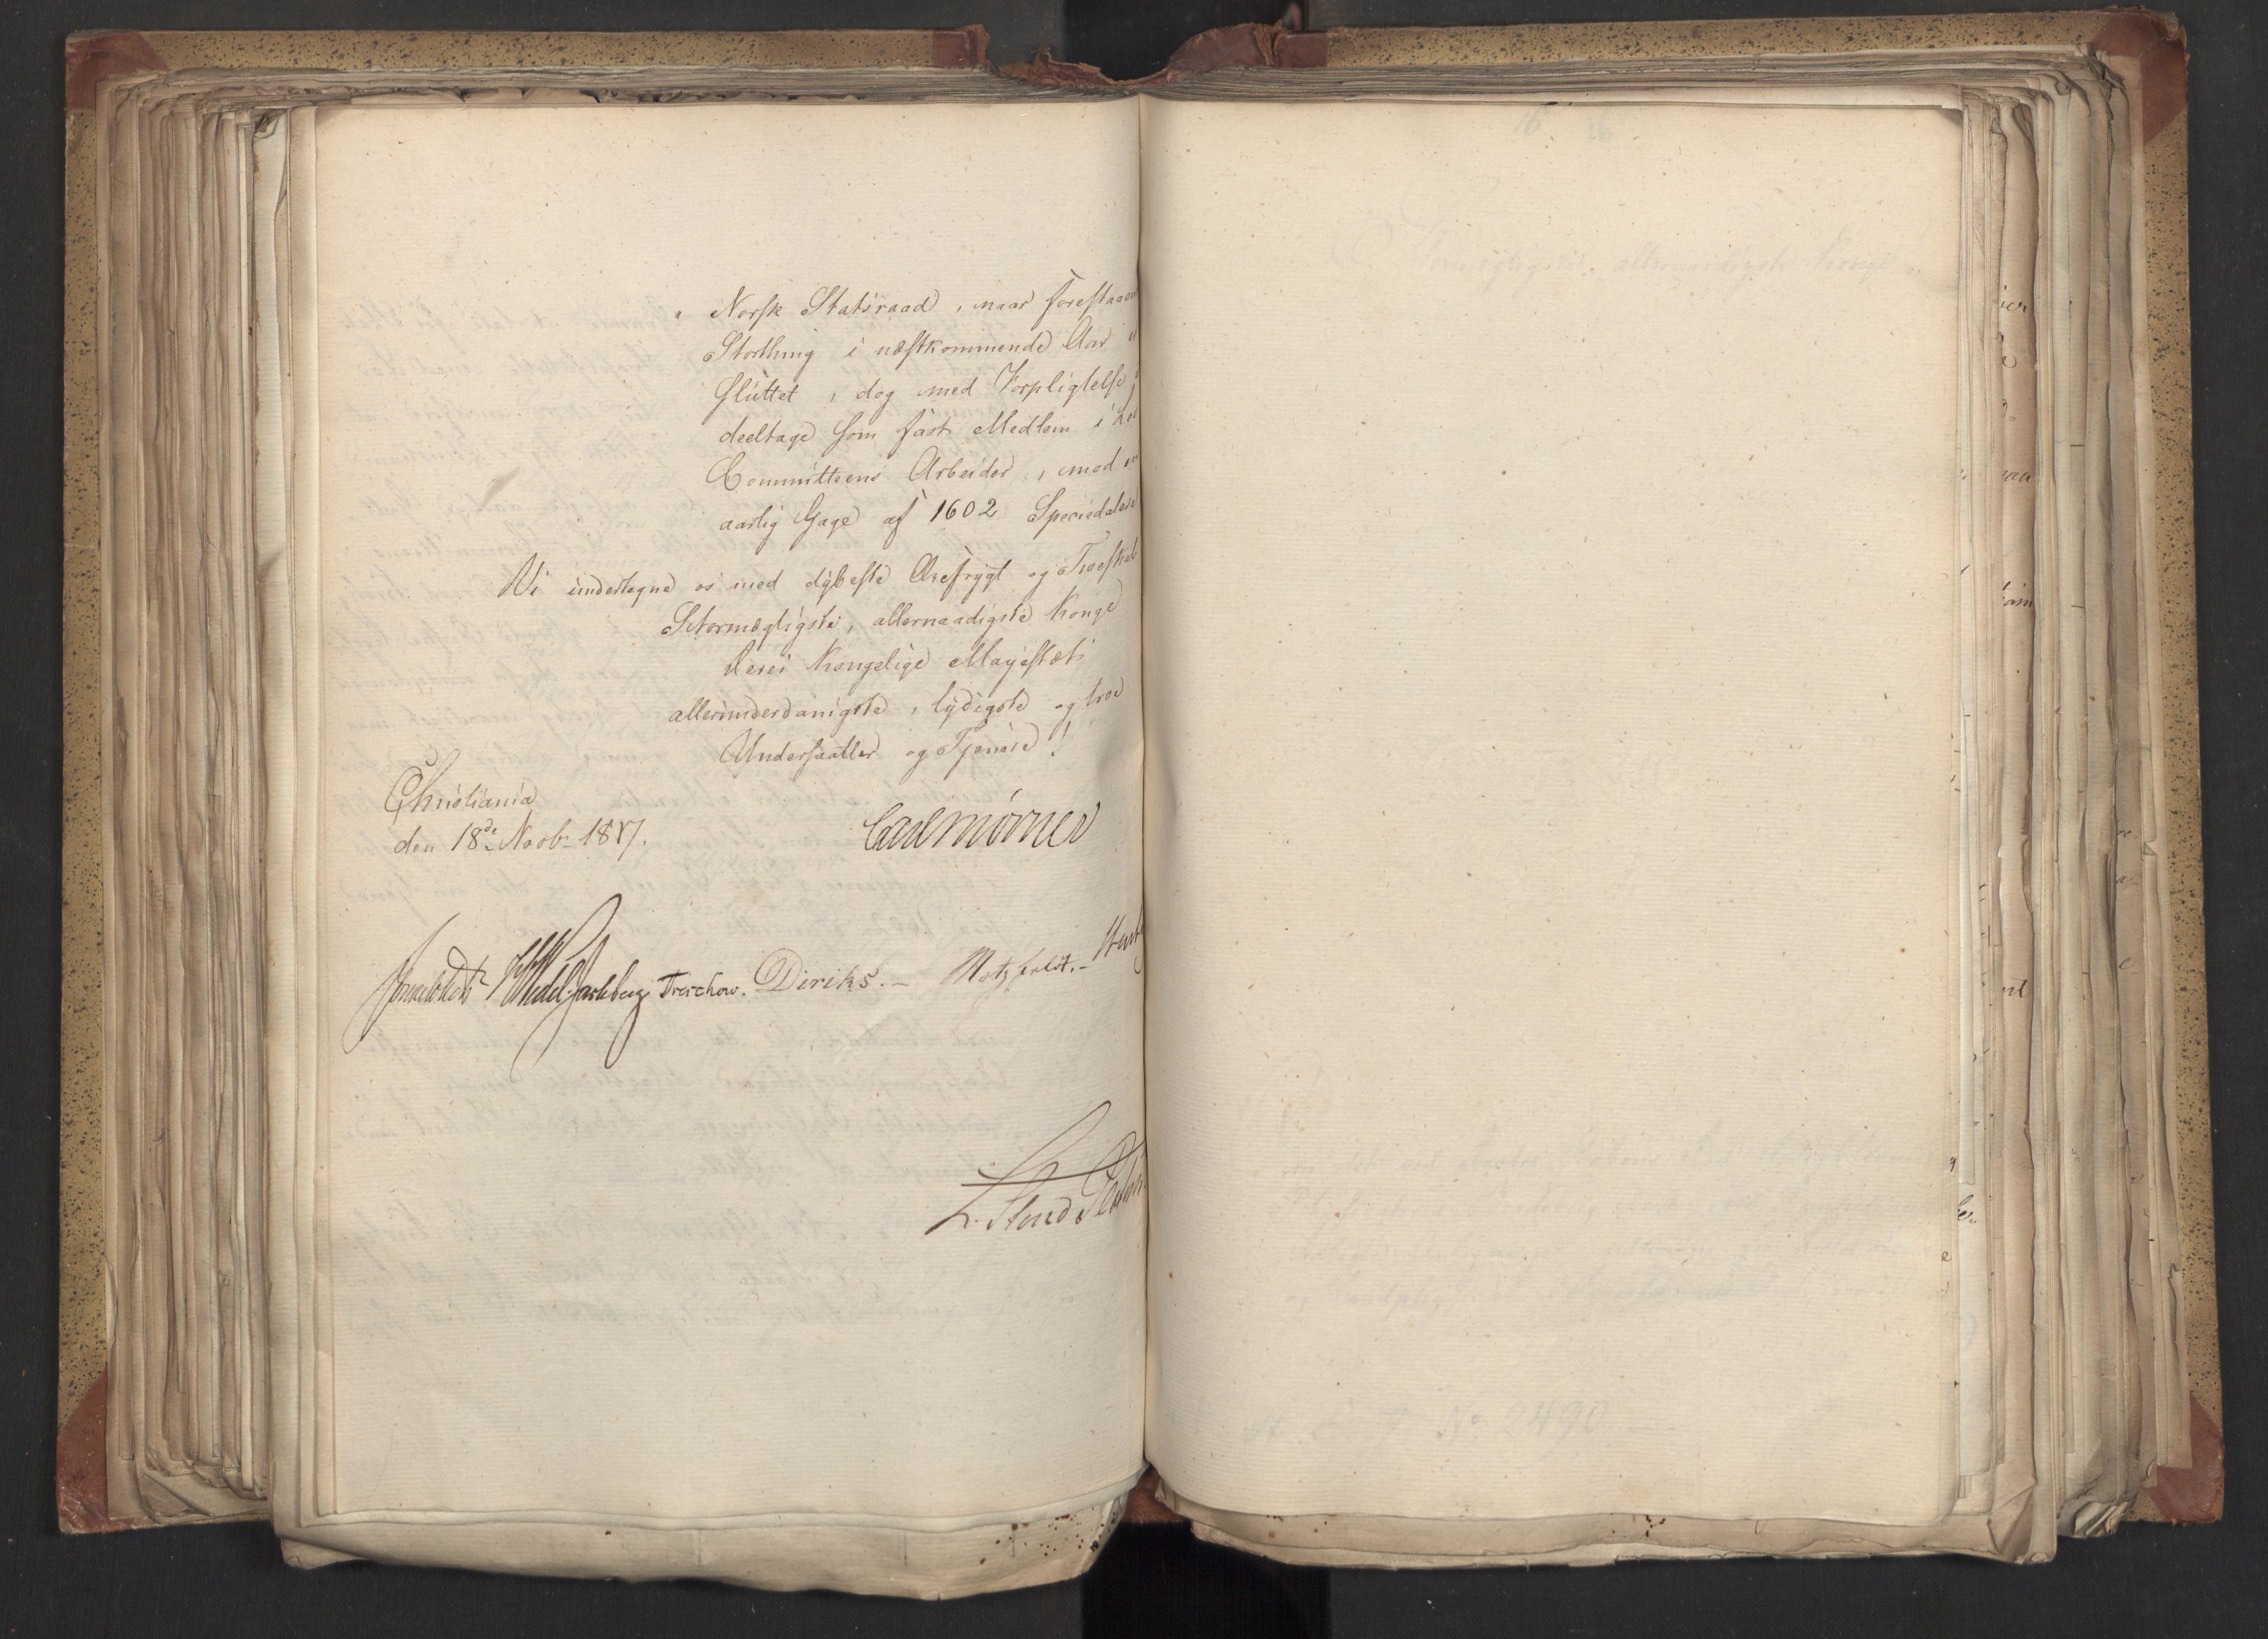 " Norsk Statsraad, naar forestaaen
Storthing i næstkommende Aar er
sluttet, dog med Forpligtelse
deeltage som fast Medlem i Lov
Committeens Arbeider, mod en
aarlig Gage af 1602 Speciedaler
Vi undertegne os med dybeste Ærefrygt og Troeskab
Stormægtigste, allernaadigste Konge
Deres Kongelige Mayestæts
allerunderdanigste, lydigste og troe
Undersaatter og Tjenere!
Christiania
den 18de Novbr 1817.
Carl Mörner
Sommerhielm Wedel-Jarlsberg Treschow. Diriks. – Motzfeldt. –
L. Stoud Platou
Stormægtigste, allernaadigste Konge
No 2490